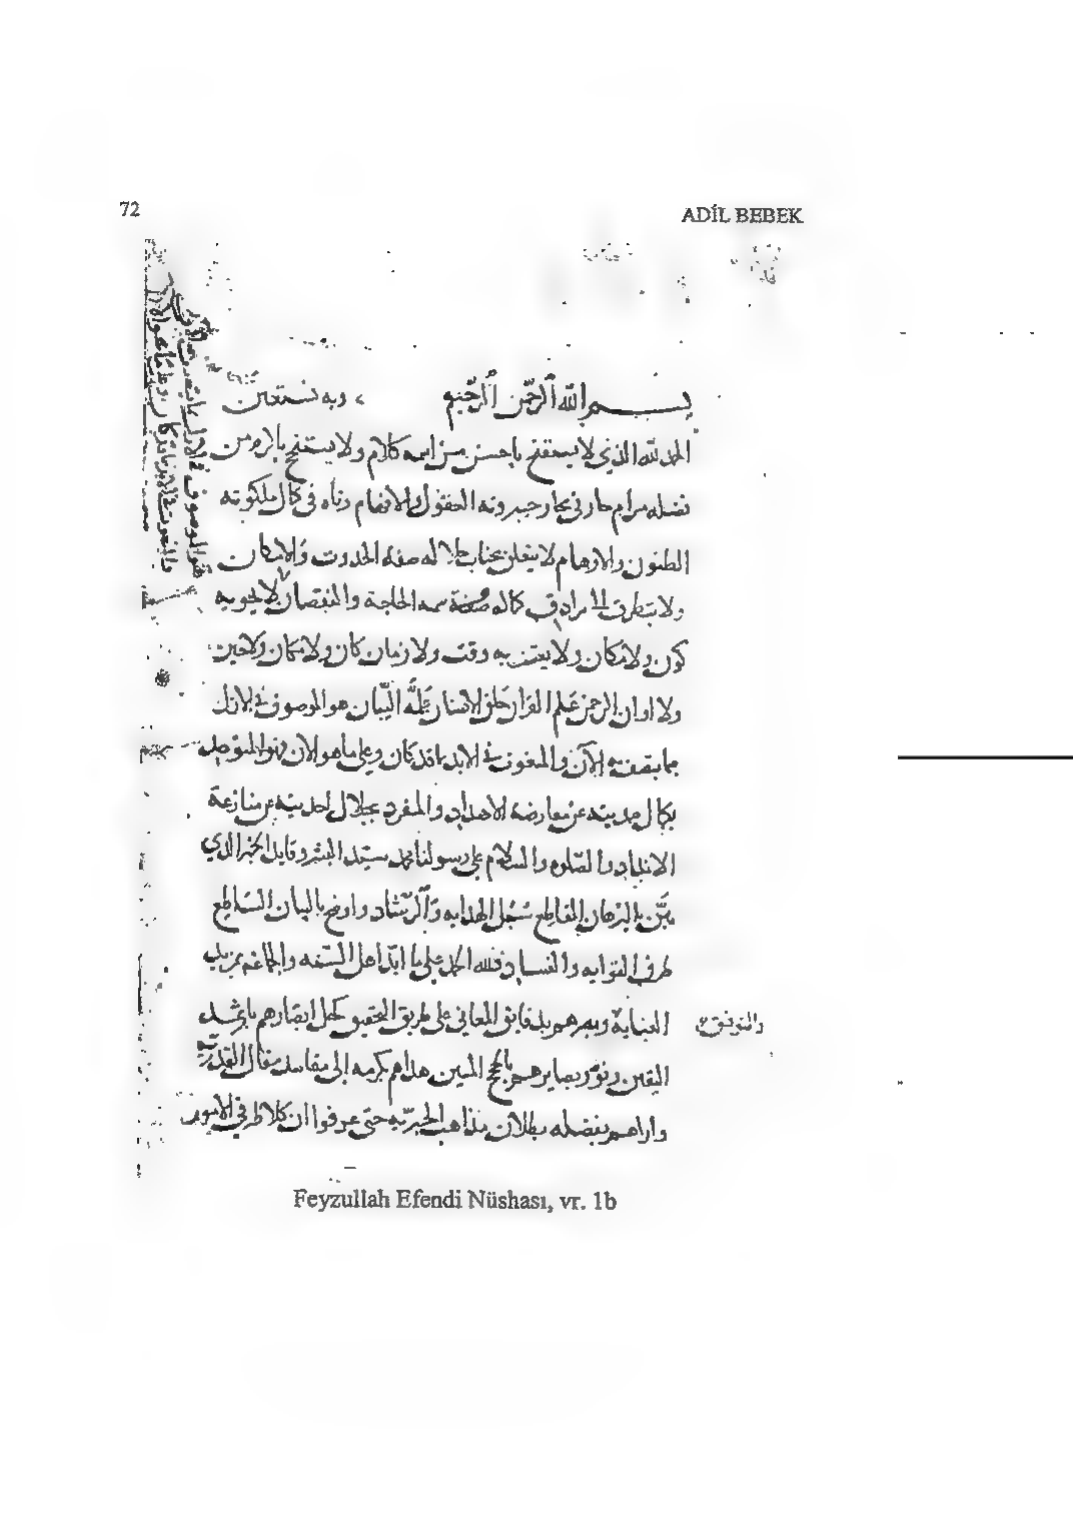 72
ADİL BEBEK
بسم الله الرحمن الرحيم وبه نستعين
الحمد لله الذي لا يستفتح باحسن من اسمه كلام ولا يستنجح من
حار في بحار جبروته العقول والافهام وتاه في كمال ملكوته
الظنون والاوهام لا يتعلق بجناب جلاله صفة الحدوث والامكان
ولا يتطرق الى سرادق كماله سمة الحاجة والنقصان لا يحويه
كون ولا مكان ولا يعتريه وقت ولا زمان كان ولا مكان ولا حين
ولا اوان الرحمن علم القرآن خلق الانسان علمه البيان هو الموصوف في الازل
بما يتصف به الآن والمنعوت في الابد بما قد كان وعلى ما هو الان وهو المتوحد
بكمال صمديته عن معارضة الاضداد والمتفرد بجلال احديته عن منازعة
الانداد والصلوة والسلام على رسولنا محمد سيد البشر وقايد الخير الذي
بين بالبرهان القاطع سبل الهداية والرشاد واوضح بالبيان الساطع
طرق الغواية والفساد فلله الحمد على ما ايد اهل السنة والجماعة بمزيد
العناية وبصرهم بدقايق المعاني على طريق التحقيق كحل ابصارهم باثمد
والتوفيق
اليقين ونور بصايرهم بالحجج المبين هداهم بكرمه الى مقاسد مقال القدرية
واراهم بفضله بطلان مذاهب الجبرية حتى عرفوا ان كلا طرفي الامور
Feyzullah Efendi Nüshası, vr. 1b